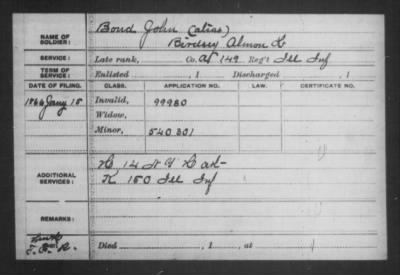 NAME OF SOLDIER: Bond John (alias)
Birdsey Almon
SERVICE: Late rank, Co. A 149 Reg't Ill Inf
TERM OF SERVICE: Enlisted , 1 Discharged , 1
DATE OF FILING. CLASS. APPLICATION NO. LAW. CERTIFICATE NO.
1866 Jany 15 Invalid, 99980
Widow,
Minor, 540301
ADDITIONAL SERVICES: 14 N Y
K 150 Ill Inf
REMARKS:
Died , 1 , at